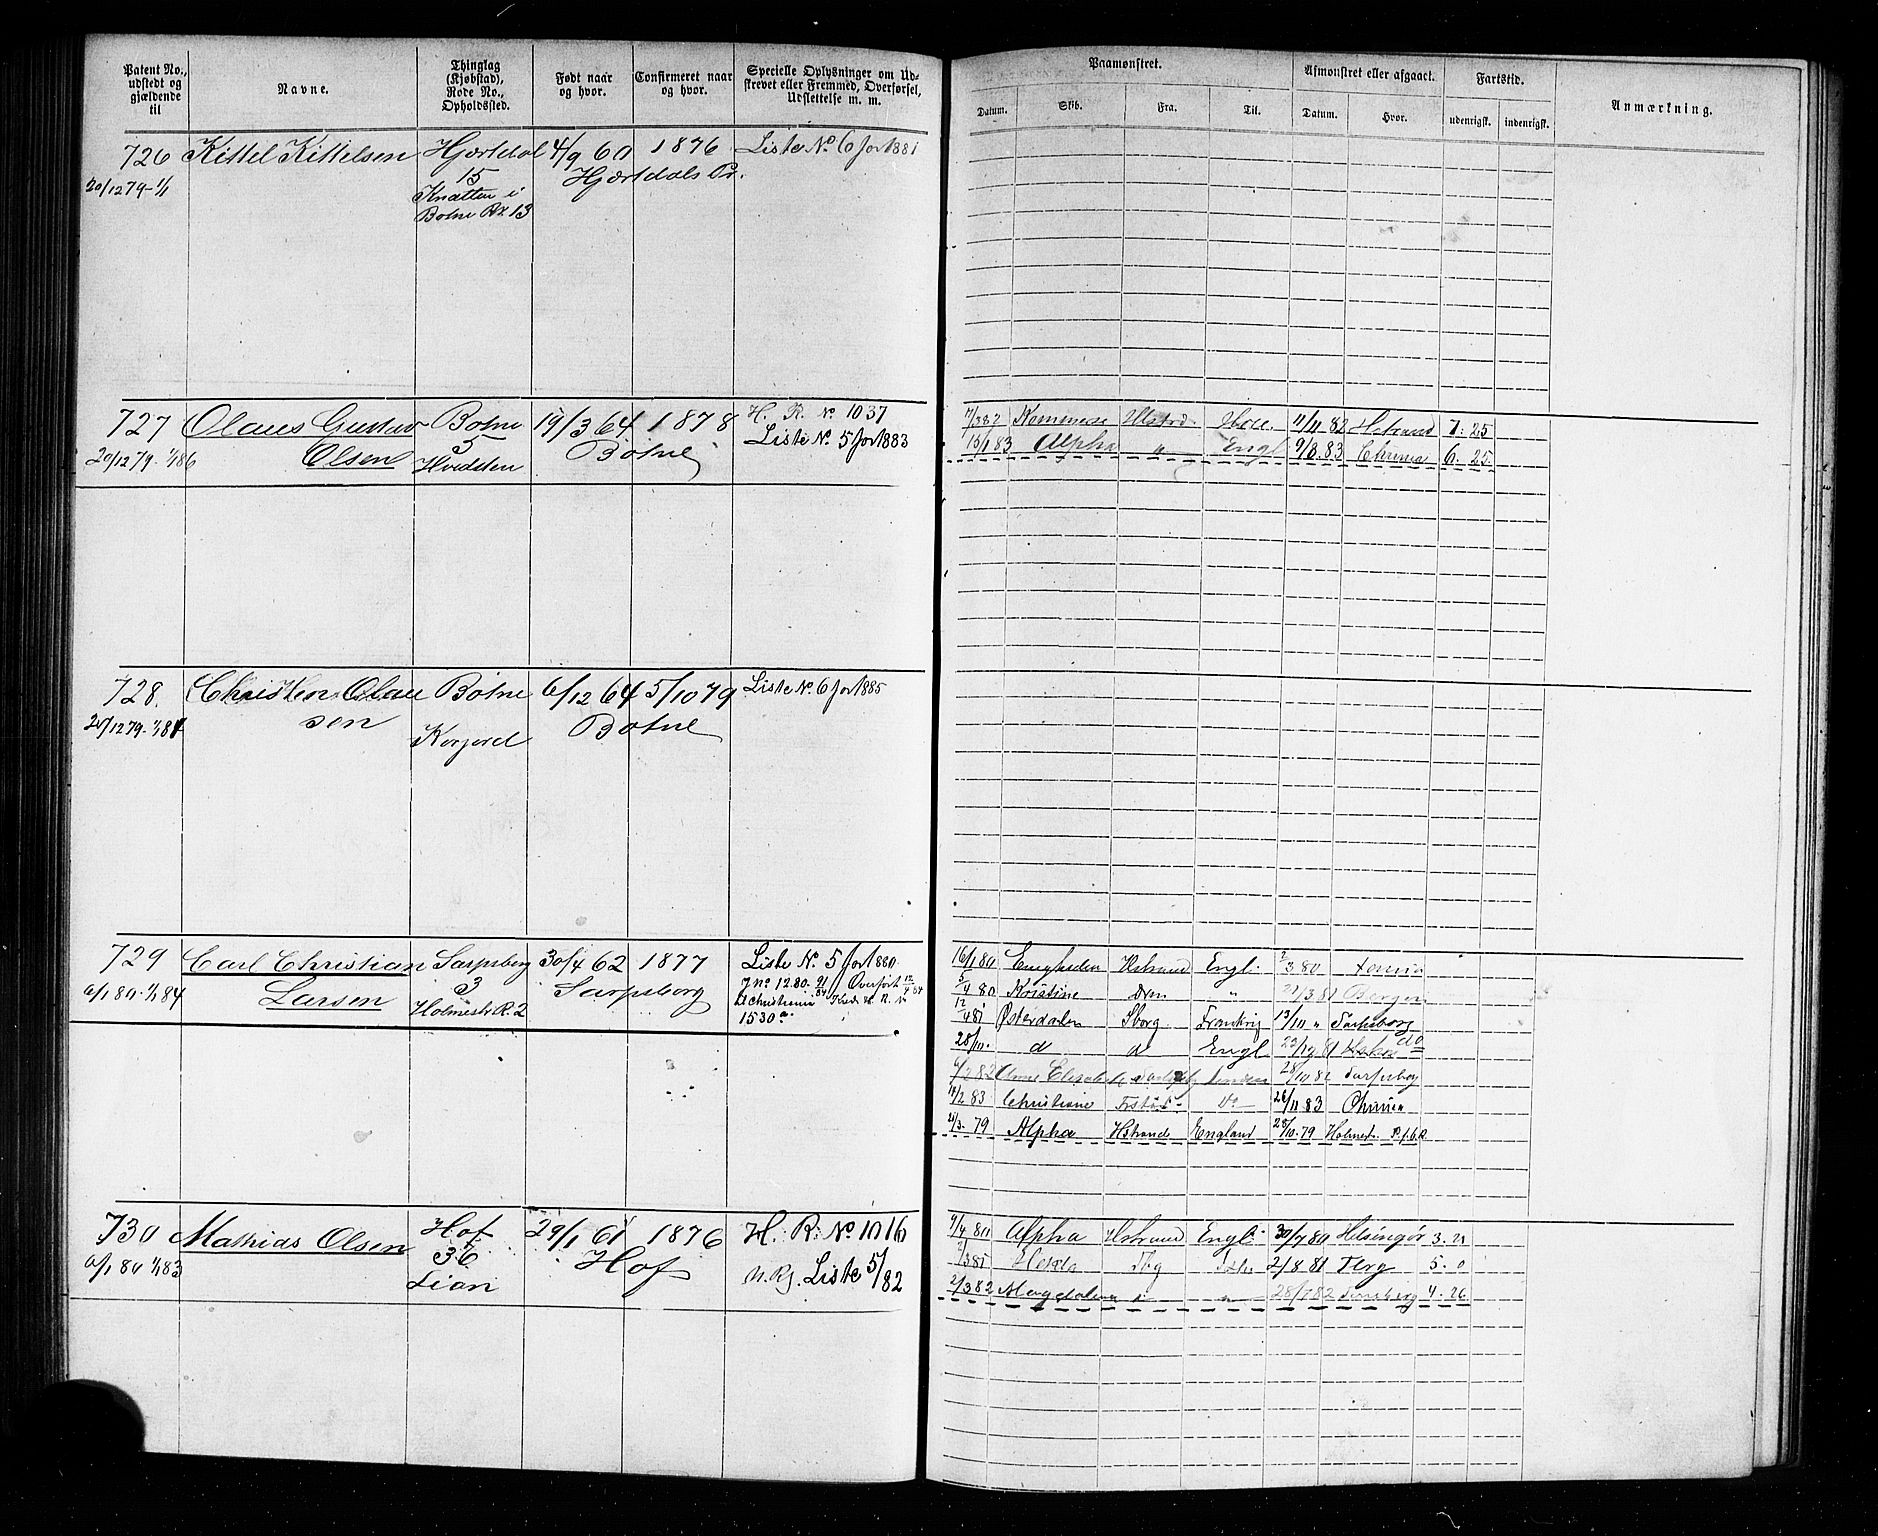 Patent No., udstedt og gjældende til
Navne.
Thinglag (Kjøbstad), Rode No., Opholdssted.
Født naar og hvor.
Confirmeret naar og hvor.
Specielle Oplysninger om Udskrevet eller Fremmed, Overførsel, Udslettelse m. m.
Paamønstret.
Datum.
Skib.
Fra.
Til.
Afmønstret eller afgaaet.
Datum.
Hvor.
Fartstid.
udenrigsk.
indenrigsk.
Anmærkning.
726 Kittel Kittelsen Hjertdal 4/9 60 1876 Liste No 6 for 1881
20/12 79 - 1/1 15 Hjertdals Pr.
Knatten i
Botne Rx. 13
727 Olaus Gustav Botne 19/3 64 1878 H. R. No 1037
20/12 79. 1/1 86 Olsen 5 Botne Liste No. 5 for 1883
Hvidsten
7/3 82 Hstrd 11/11 82 Hstrand 7. 25
15/1 83 Alpha " Engl 9/8. 83 Chrnia 6. 25.
728. Christen Olau Botne 6/12 64 5/10 79 Liste No 6 for 1885
20/12 79. 1/1 87 sen Botne
729 Carl Christian Sarpsborg 30/4 62 1877 Liste No. 5 for 1880
6/1 80. 1/1 84 Larsen 3 Sarpsborg
Holmestr R. 2
1530
16/1 80 Hstrand Engl. 2/3 80
4 80 Kristine Drm " 21/3 81 Bergen
12/4 81 Østerdalen Sborg Frankrig 13/10 " Sarpsborg
28/10. d d Engl do
82 Sarpsborg
14/2 83 Christiane Fstad Do 26/11 83 Chrnia
79 Alpha Hstrand England 28/10. 79 Holmest.
730 Mathias Olsen Hof 29/1 61 1876 H. R. No 1016
6/1 80 1/1 83 36 Hof Liste 5/82
Lian
9/4 80 Alpha Hstrand Engl. 30/7 80 Helsingør 3. 21
2/3 81 Tbg 2/8 81 Tbrg 5. 0
2/3 82 Magdalena " " 28/7 82 Tønsberg 4. 26